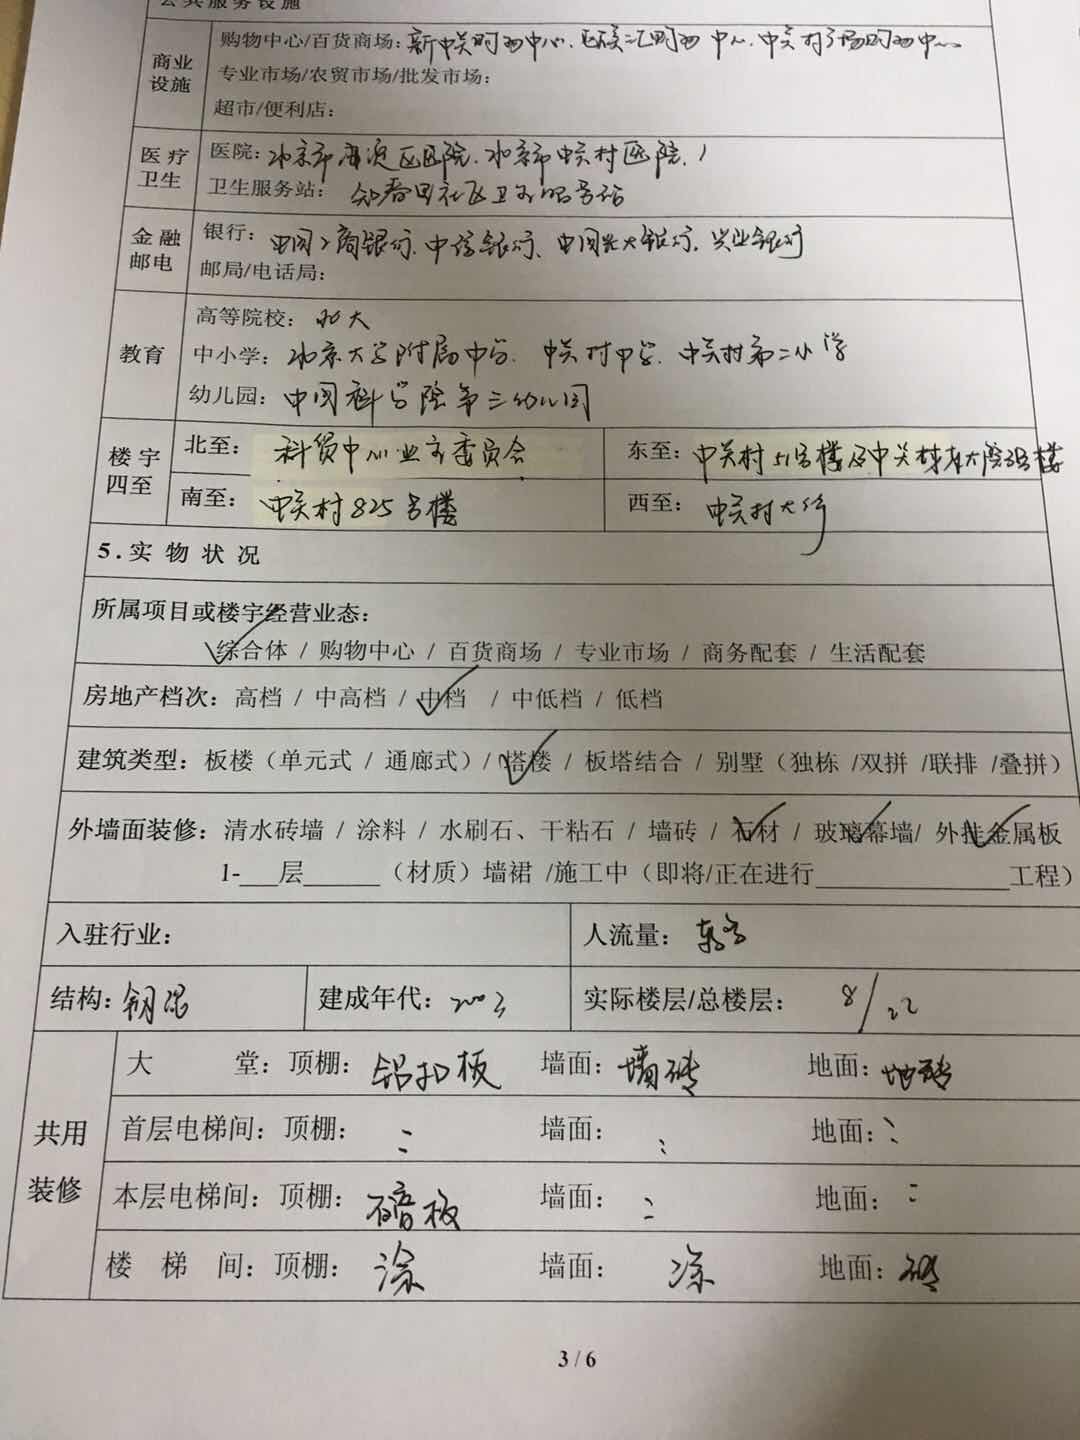 公共服务设施
商业设施
购物中心/百货商场：新中关购物中心、欧美汇购物中心、中关村广场购物中心
专业市场/农贸市场/批发市场：
超市/便利店：
医疗卫生
医院：北京市海淀区医院、北京市中关村医院、
卫生服务站：知春里社区卫生服务站
金融邮电
银行：中国工商银行、中信银行、中国光大银行、兴业银行
邮局/电话局：
教育
高等院校：北大
中小学：北京大学附属中学、中关村中学、中关村第二小学
幼儿园：中国科学院第三幼儿园
楼宇四至
北至：科贸中心业主委员会 东至：中关村51号楼及中关村 号楼
南至：中关村825号楼 西至：中关村大街
5.实物状况
所属项目或楼宇经营业态：
综合体 / 购物中心 / 百货商场 / 专业市场 / 商务配套 / 生活配套
房地产档次：高档 / 中高档 / 中档 / 中低档 / 低档
建筑类型：板楼（单元式 / 通廊式）/ 塔楼 / 板塔结合 / 别墅（独栋 /双拼 /联排 /叠拼）
外墙面装修：清水砖墙 / 涂料 / 水刷石、干粘石 / 墙砖 / 石材 / 玻璃幕墙/ 外挂金属板
1-___层______（材质）墙裙 /施工中（即将/正在进行_______________工程）
入驻行业： 人流量：较高
结构：钢混 建成年代：2003 实际楼层/总楼层：8/22
共用装修
大堂：顶棚：铝扣板 墙面：墙砖 地面：地砖
首层电梯间：顶棚： 墙面： 地面：
本层电梯间：顶棚：石膏板 墙面： 地面：
楼梯间：顶棚：涂 墙面：涂 地面：砖
3 / 6